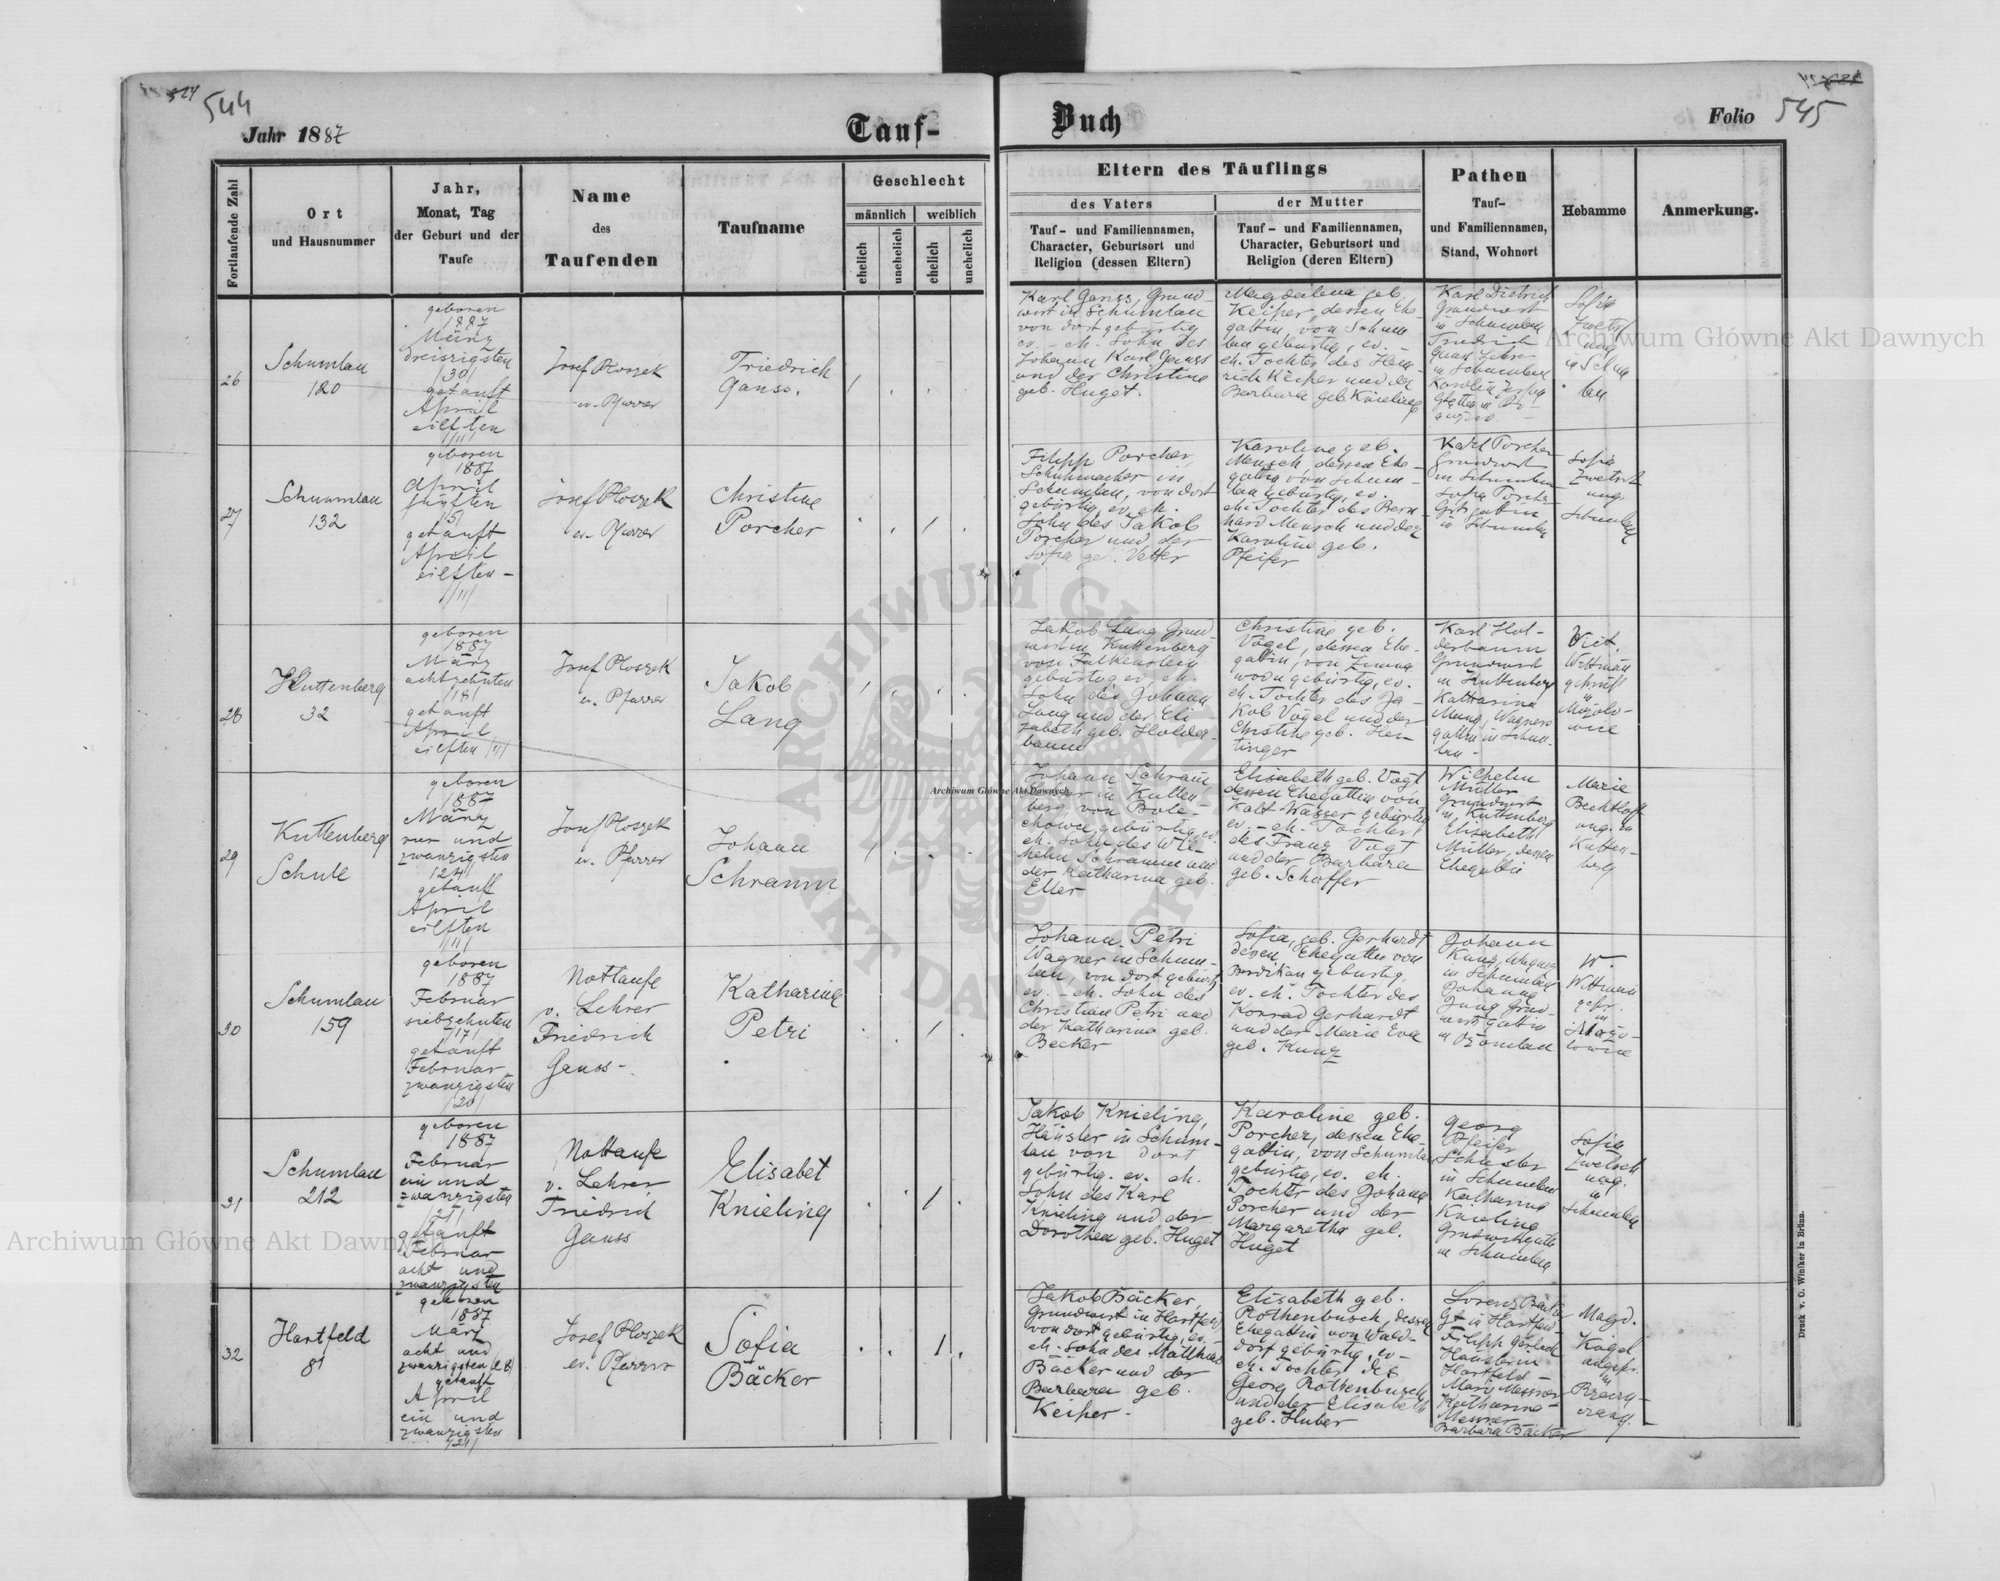 544
Jahr 1887
Tauf-
Buch
Folio 545
Fortlaufende Zahl
Ort
und Hausnummer
Jahr,
Monat, Tag
der Geburt und der
Taufe
Name
des
Taufenden
Taufname
Geschlecht
männlich
weiblich
ehelich
unehelich
ehelich
unehelich
Eltern des Täuflings
des Vaters
der Mutter
Tauf- und Familiennamen,
Character, Geburtsort und
Religion (dessen Eltern)
Tauf- und Familiennamen,
Character, Geburtsort und
Religion (deren Eltern)
Pathen
Tauf-
und Familiennamen,
Stand, Wohnort
Hebamme
Anmerkung.
26
Schumlau
120
geboren
1887
März
dreiszigsten
/30/
getauft
April
eilften
/11/
Josef Ploszek
ev. Pfarrer
Friedrich
Ganss.
Karl Ganss, Grund-
wirt in Schumlau
von dort gebürtig
ev. - eh. Sohn des
Johann Karl Ganss
und der Christine
geb. Huget.
Magdalena geb.
Keiper, dessen Ehe-
gattin, von Schum
lau gebürtig, ev. -
eh. Tochter des Hein
rich Keiper und der
Barbara geb. Knieling
Karl Dietrich
Grundwirt
in Schumlau
Friedrich
Ganss Lehrer
in Schumlau
Sofie
27
Schumlau
132
geboren
1887
April
fünften
/5/
getauft
April
eilften -
/11/
Josef Ploszek
ev. Pfarrer
Christine
Porcher
Filipp Porcher,
Schuhmacher in
Schumlau, von dort
gebürtig, ev. eh.
Sohn des Jakob
Porcher und der
Sofia geb. Vetter
Karoline geb.
Mensch, dessen Ehe-
gattin von Schum-
lau gebürtig, ev.
eh. Tochter des Bern
hard Mensch und der
Karoline geb.
Pfeifer
Karl Porcher
Grundwirt
in Schumlau
Sofia Porcher
Grts gattin
in Schumlau
Sofia
Zwetsch
ung.
Schumlau
28
Kuttenberg
32
geboren
1887
März
achtzehnten
/18/
getauft
April
eilften /11/
Josef Ploszek
ev. Pfarrer
Jakob
Lang
Jakob Lang Grund-
wirt in Kuttenberg
von Falkenstein
gebürtig ev. eh.
Sohn des Johann
Lang und der Eli
zabeth geb. Holder
baum
Christine geb.
Vogel, dessen Ehe-
gattin, von Zimna
woda gebürtig, ev.
eh. Tochter des Ja-
kob Vogel und der
Christine geb. Her-
tinger
Karl Hol-
derbaum
Grundwirt
in Kuttenberg
Katharina
Mang, Wagners
gattin in Schum-
lau -
Vict.
Wittman
geprüft
in
29
Kuttenberg
Schule
geboren
1887
März
vier und
zwanzigsten
/24/
getauft
April
eilften
/11/
Josef Ploszek
ev. Pfarrer
Johann
Schramm
Johann Schram
Lehrer in Kutten-
berg von Bole-
chow gebürtig, ev.
eh. Sohn des Wil-
helm Schramm und
der Katharina geb.
Etter
Elisabeth geb. Vogt
dessen Ehegattin von
Kalt Wasser gebürtig
ev. - eh. Tochter
des Franz Vogt
und der Barbara
geb. Schoffer
Wilhelm
Müller
Grundwirt
in Kuttenberg
Elisabeth
Müller, dessen
Ehegattin
Marie
Bechtloff
ung. in
Kutten-
berg
30
Schumlau
159
geboren
1887
Februar
siebzehnten
/17/
getauft
Februar
zwanzigsten
/20/
Nottaufe
v. Lehrer
Friedrich
Ganss -
Katharine
Petri
Johann Petri
Wagner in Schum-
lau, von dort gebürtig
ev. - eh. Sohn des
Christian Petri und
der Katharina geb.
Becker
Sofia, geb. Gerhardt
dessen Ehegattin von
Berdikau gebürtig,
ev. eh. Tochter des
Konrad Gerhardt
und der Marie Eva
geb. Kunz
Johann
Kung, Wagner
in Schumlau
Johanna
Jung Grund-
wirtsgattin
W.
Wittman
gepr.
in
31
Schumlau
212
geboren
1887
Februar
ein und
zwanzigsten
/21/
getauft
Februar
acht und
zwanzigsten
Nottaufe
v. Lehrer
Friedrich
Ganss
Elisabet
Knieling
Jakob Knieling,
Häusler in Schum-
lau von dort
gebürtig. ev. eh.
Sohn des Karl
Knieling und der
Dorothea geb. Huget
Karoline geb.
Porcher, dessen Ehe-
gattin, von Schumlau
gebürtig, ev. eh.
Tochter des Johann
Porcher und der
Margaretha geb.
Huget
Georg
Pfeifer
Schuster
in Schumlau
Katharina
Knieling
Grundwirtsgattin
in Schumlau
Sofia
Zwetsch
ung.
in
Schumlau
32
Hartfeld
81
geboren
1887
März
acht und
zwanzigsten /28/
getauft
April
ein und
zwanzigsten
/21/
Josef Ploszek
ev. Pfarrer
Sofia
Bäcker
Jakob Bäcker,
Grundwirt in Hartfeld
von dort gebürtig, ev. -
eh. Sohn des Matthias
Bäcker und der
Barbara geb.
Keiper -
Elisabeth geb.
Rothenbusch, dessen
Ehegattin von Wald-
dorf gebürtig, ev -
eh. Tochter des
Georg Rothenbusch
und der Elisabeth
geb. Huber
Lorenz Bäcker
Gt in Hartfeld
Filipp Gerlach
Häusler in
Hartfeld -
Marie Messner
Katharina
Messner
Barbara Bäcker
Magd.
Kogel
ungepr.
in
Druck v. C. Winiker in Brünn.
Archiwum Główne Akt Dawnych
Archiwum Główne Akt Dawnych
Archiwum Główne Akt Dawnych
ARCHIWUM GŁÓWNE AKT DAWNYCH